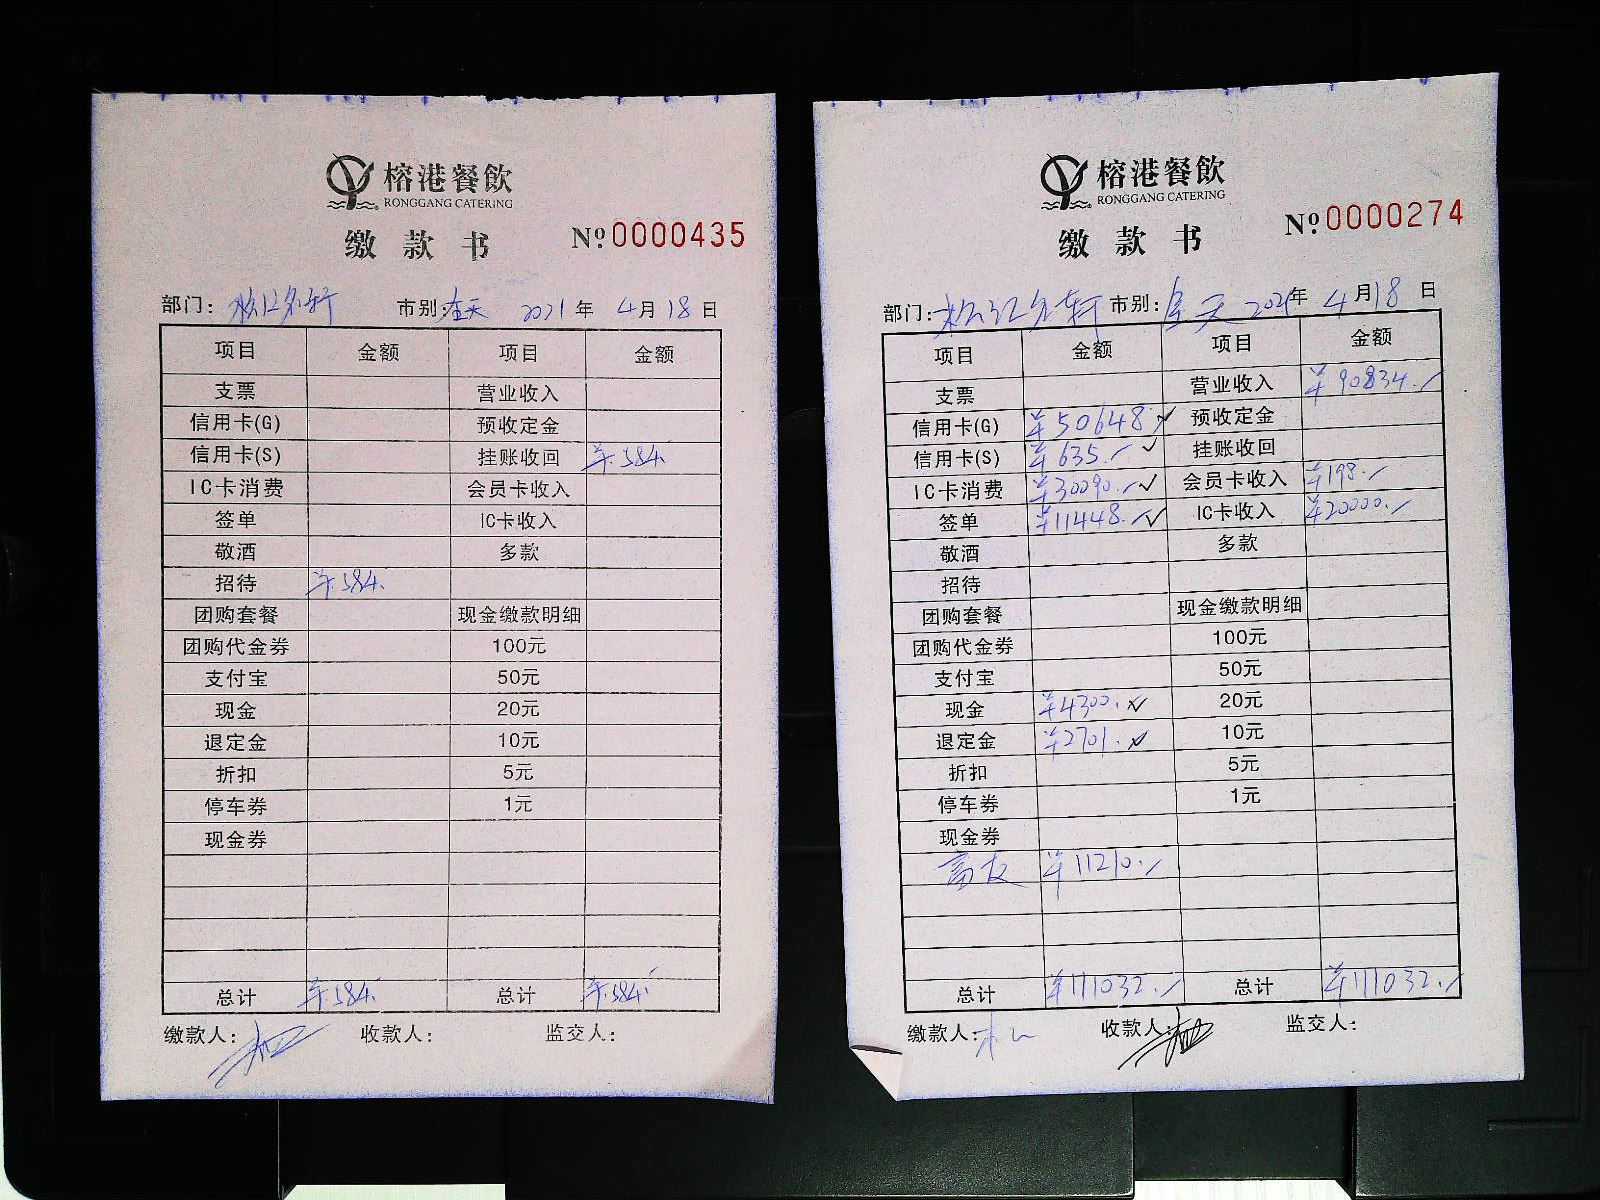 榕港餐飲
RONGGANG CATERING
缴款书
№ 0000435
部门: 松江名轩 市别: 全天 2021年 4月18日
项目 金额 项目 金额
支票 营业收入
信用卡(G) 预收定金
信用卡(S) 挂账收回 ¥584.
IC卡消费 会员卡收入
签单 IC卡收入
敬酒 多款
招待 ¥584.
团购套餐 现金缴款明细
团购代金券 100元
支付宝 50元
现金 20元
退定金 10元
折扣 5元
停车券 1元
现金券
总计 ¥584. 总计 ¥584.
缴款人: 收款人: 监交人:
榕港餐飲
RONGGANG CATERING
缴款书
№ 0000274
部门: 松江名轩 市别: 全天 2021年 4月18日
项目 金额 项目 金额
支票 营业收入 ¥90834.
信用卡(G) ¥50648 预收定金
信用卡(S) ¥635. 挂账收回
IC卡消费 ¥30090. 会员卡收入 ¥198.
签单 ¥11448. IC卡收入 ¥20000.
敬酒 多款
招待
团购套餐 现金缴款明细
团购代金券 100元
支付宝 50元
现金 ¥4300. 20元
退定金 ¥2701. 10元
折扣 5元
停车券 1元
现金券
¥11210.
总计 ¥111032. 总计 ¥111032.
缴款人: 收款人: 监交人: